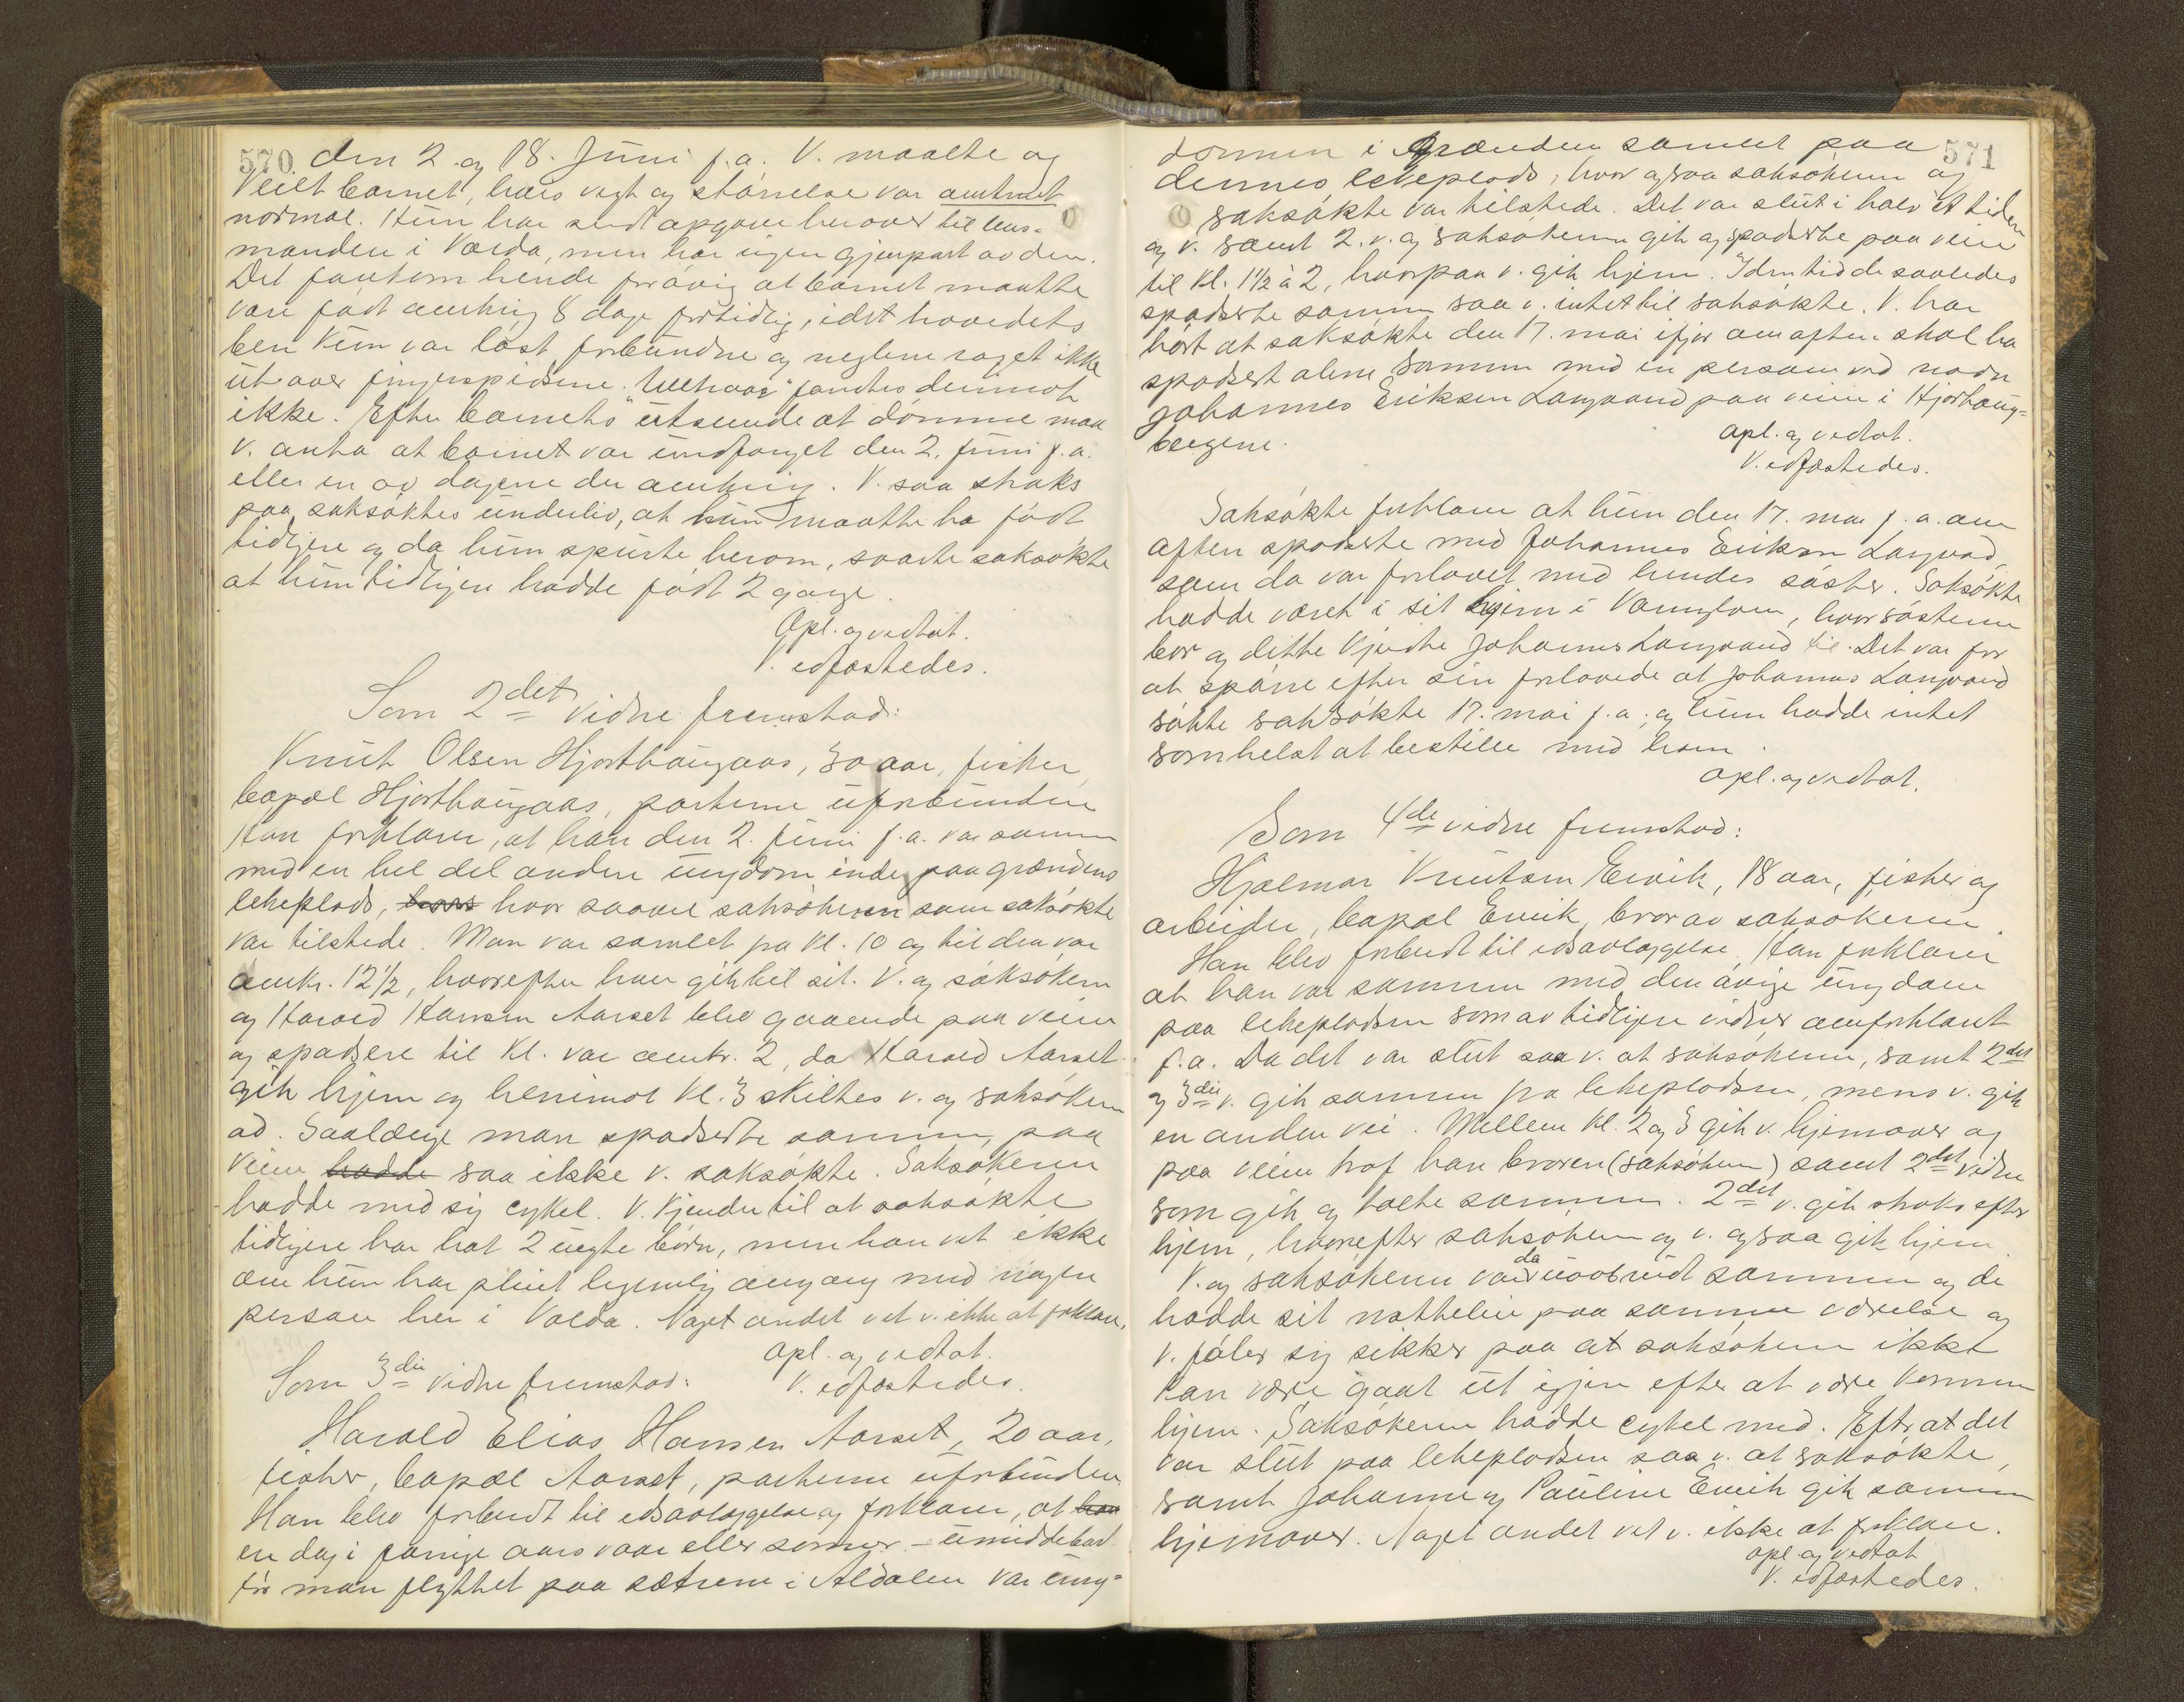 570 den 2. og 18. Juni f.a. V. maalte og
veilt barnet, hvis vegt og størrelse var omtrent
normal. Hun har sendt opgave herover til lens-
manden i Volda, men har ingen gjenpart av den.
Det forekom hende forøvrig at barnet maatte
være født omkring 8 dage fortidlig, idet hovedets
ben kun var løst forbundne og neglene raget ikke
ut over fingerspidsene. "Uldhaar" fandtes derimot
ikke. Efter barnets utseende at dømme maa
V. anta at barnet var undfanget den 2. juni f.a.
eller en av dagene der omkring. V. saa straks
paa saksøktes underliv, at hun maatte ha født
tidligere og da hun spurte herom, svarte saksøkte
at hun tidligere hadde født 2 gange.
Opl. og vedtat.
V. edfæstedes.
Som 2det vidne fremstod:
Knut Olsen Hjorthaugaas, 30 aar, fisker,
bopæl Hjorthaugaas, parterne uforbunden
Han forklarer, at han den 2. juni f.a. var sammen
med en hel del anden ungdom inde paa grændens
lekeplads, hvor saavel saksøkeren som saksøkte
var tilstede. Man var samlet fra kl. 10 og til den var
omkr. 12½, hvorefter hver gik til sit. V. og saksøkeren
og Harald Hansen Aarset blev gaaende paa veien
og spadsere til kl. var omkr. 2, da Harald Aarset
gik hjem og henimot kl. 3 skiltes v. og saksøkeren
ad. Saalænge man spadserte sammen paa
veien hadde saa ikke v. saksøkte. Saksøkeren
hadde med sig cykel. V. kjender til at saksøkte
tidligere har hat 2 uegte børn, men han vet ikke
om hun har pleiet legemlig omgang med nogen
person her i Volda. Noget andet vet v. ikke at forklare.
Opl. og vedtat.
V. edfæstedes.
Som 3die vidne fremstod:
Harald Elias Hansen Aarset, 20 aar,
fisker, bopæl Aarset, parterne uforbunden
Han blev forberedt til edsavlæggelse og forklarer, at han
en dag i forrige aars vaar eller sommer - umiddelbart
før man flyttet paa sætrene i Aldalen var ung-
571
dommen i Grænden samlet paa
dennes lekeplads, hvor ogsaa saksøkeren og
saksøkte var tilstede. Det var slut i halv et tiden
og v. samt 2. v. og saksøkeren gik og spaserte paa veien
til kl. 1½ à 2, hvorpaa v. gik hjem. I den tid de saaledes
spaserte sammen saa v. intet til saksøkte. V. har
hørt at saksøkte den 17. mai ifjor om aften skal ha
spasert alene sammen med en person ved navn
Johannes Eriksen Langvand paa veien i Hjorthaug-
bergene.
Opl. og vedtat.
V. edfæstedes.
Saksøkte forklarer at hun den 17. mai f.a. om
aften spaserte med Johannes Eriksen Langvad,
som da var forlovet med hendes søster. Saksøkte
hadde været i sit hjem i Vanylven, hvor søsteren
bor og dette kjendte Johannes Langvand til. Det var for
at spørre efter sin forlovede at Johannes Langvand
søkte saksøkte 17. mai f.a. og hun hadde intet
somhelst at bestille med ham.
Opl. og vedtat.
Som 4de vidne fremstod:
Hjalmar Knutsen Ervik, 18 aar, fisker og
arbeider, bopæl Ervik, bror av saksøkeren.
Han blev forberedt til edsavlæggelse. Han forklarer
at han var sammen med den øvrige ungdom
paa lekepladsen som av tidligere vidner omforklart
f.a. Da det var slut saa v. at saksøkeren, samt 2det
og 3die v. gik sammen fra lekepladsen, mens v. gik
en anden vei. Mellem kl. 2 og 3 gik v. hjemover og
paa veien traf han broren (saksøkeren) samt 2det vidne
som gik og talte sammen. 2det v. gik straks efter
hjem, hvorefter saksøkeren og v. ogsaa gik hjem.
V. og saksøkeren var da uavbrudt sammen og de
hadde sit natteleie paa samme værelse og
v. føler sig sikker paa at saksøkeren ikke
kan være gaat ut igjen efter at være kommen
hjem. Saksøkeren hadde cykel med. Efter at det
var slut paa lekepladsen saa v. at saksøkte,
samt Johanne og Pauline Ervik gik sammen
hjemover. Noget andet vet v. ikke at forklare.
Opl. og vedtat
V. edfæstedes.